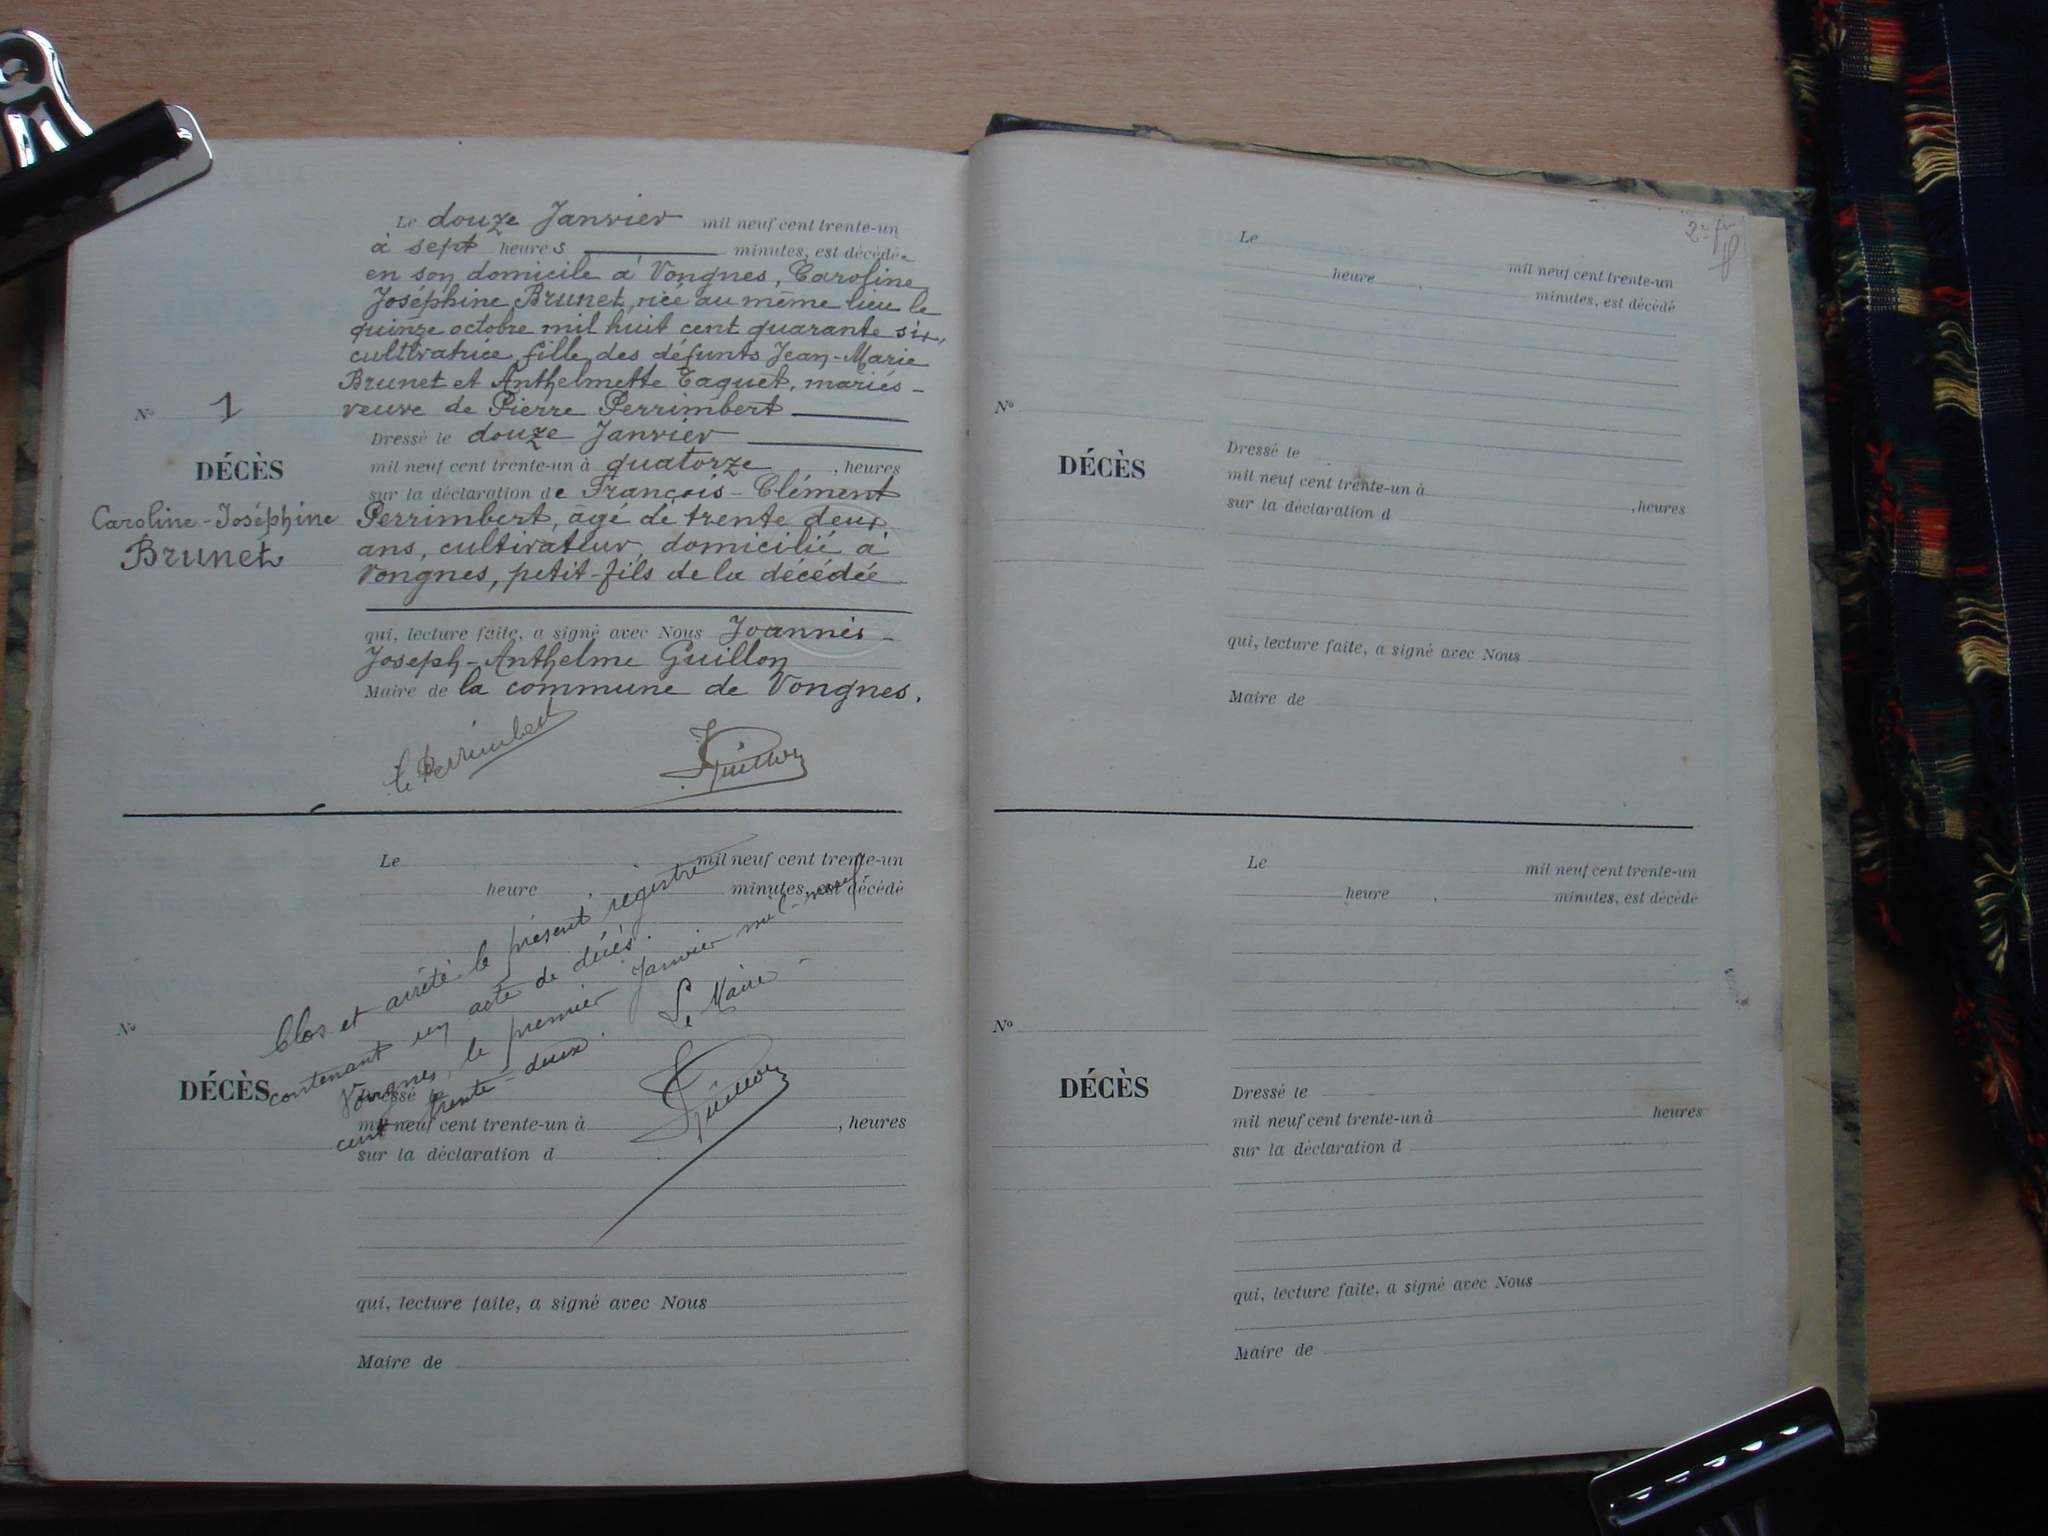 Le douze Janvier mil neuf cent trente-un
à sept heures minutes, est décédée
en son domicile à Vongnes, Caroline
Joséphine Brunet, née au même lieu le
quinze octobre mil huit cent quarante six,
cultivatrice, fille des défunts Jean-Marie
Brunet et Anthelmette Taquet, mariés-
veuve de Pierre Perrimbert
Nº 1
DÉCÈS
Caroline-Joséphine
Brunet
Dressé le douze Janvier
mil neuf cent trente-un à quatorze, heures
sur la déclaration de François-Clément
Perrimbert, âgé de trente deux
ans, cultivateur, domicilié à
Vongnes, petit-fils de la décédée
qui, lecture faite, a signé avec Nous Joannès-
Joseph-Anthelme Guillon
Maire de la commune de Vongnes.
C. Perrimbert
J Guillon
Le mil neuf cent trente-un
heure , minutes, est décédé
Clos et arrêté le présent registre
contenant un acte de décès.
Vongnes, le premier Janvier mil-neuf
cent trente-deux.
Le Maire
J Guillon
Nº
DÉCÈS
Dressé le
mil neuf cent trente-un à , heures
sur la déclaration d
qui, lecture faite, a signé avec Nous
Maire de
Le mil neuf cent trente-un
heure , minutes, est décédé
Nº
DÉCÈS
Dressé le
mil neuf cent trente-un à , heures
sur la déclaration d
qui, lecture faite, a signé avec Nous
Maire de
Le mil neuf cent trente-un
heure , minutes, est décédé
Nº
DÉCÈS
Dressé le
mil neuf cent trente-un à heures
sur la déclaration d
qui, lecture faite, a signé avec Nous
Maire de